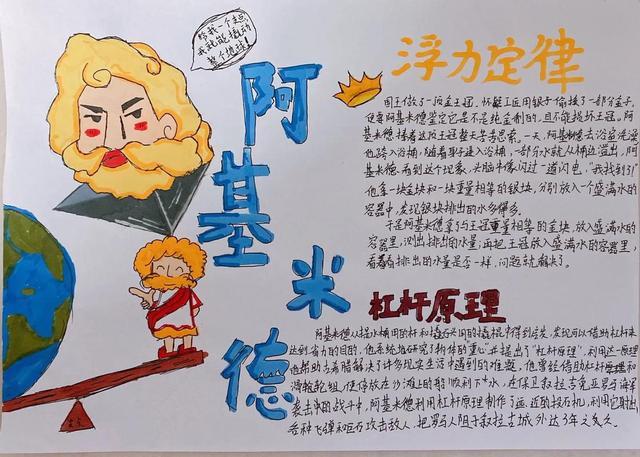 给我一个支点
我就能撬动
整个地球!
阿
基
米
德
浮力定律
国王做了一顶金王冠,怀疑工匠用银子偷换了一部分金子,
便要阿基米德鉴定它是不是纯金制的,且不能损坏王冠。阿
基米德捧着这顶王冠整天苦苦思索。一天,阿基米德去浴室洗澡
他跨入浴桶,随着身子进入浴桶,一部分水就从桶边溢出,阿
基米德看到这个现象,头脑中像闪过一道闪电,"我找到了!"
他拿一块金块和一块重量相等的银块,分别放入一个盛满水的
容器中,发现银块排出的水多得多。
于是阿基米德拿了与王冠重量相等的金块,放入盛满水的
容器里,测出排出的水量,再把王冠放入盛满水的容器里,
看看排出的水量是否一样,问题就解决了。
杠杆原理
阿基米德从提水桶用的杆和撬石头用的撬棍中得到启发,发现可以借助杠杆来
达到省力的目的,他系统地研究了物体的重心并提出了"杠杆原理",利用这一原理
他帮助古希腊解决了许多现实生活中遇到的难题,他曾经借助杠杆原理和
滑轮轮组,使停放在沙滩上的船顺利下水,在保卫叙拉古免受罗马海军
袭击中的战斗中,阿基米德利用杠杆原理制作了远、近的投石机,利用它射出
各种飞弹和巨石攻击敌人,把罗马人阻于叙拉古城外达3年之久之久
支点